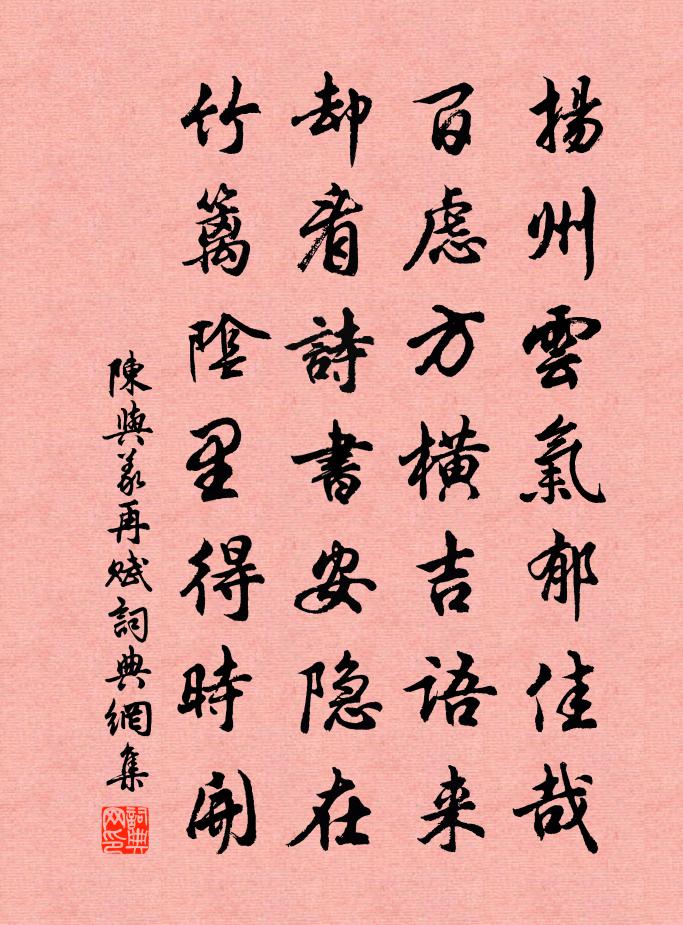 揚州雲氣郁佳哉
百慮方橫吉語来
却看詩書安隐在
竹篱陰里得時開
陳與義再赋詞典網集
詞典网印